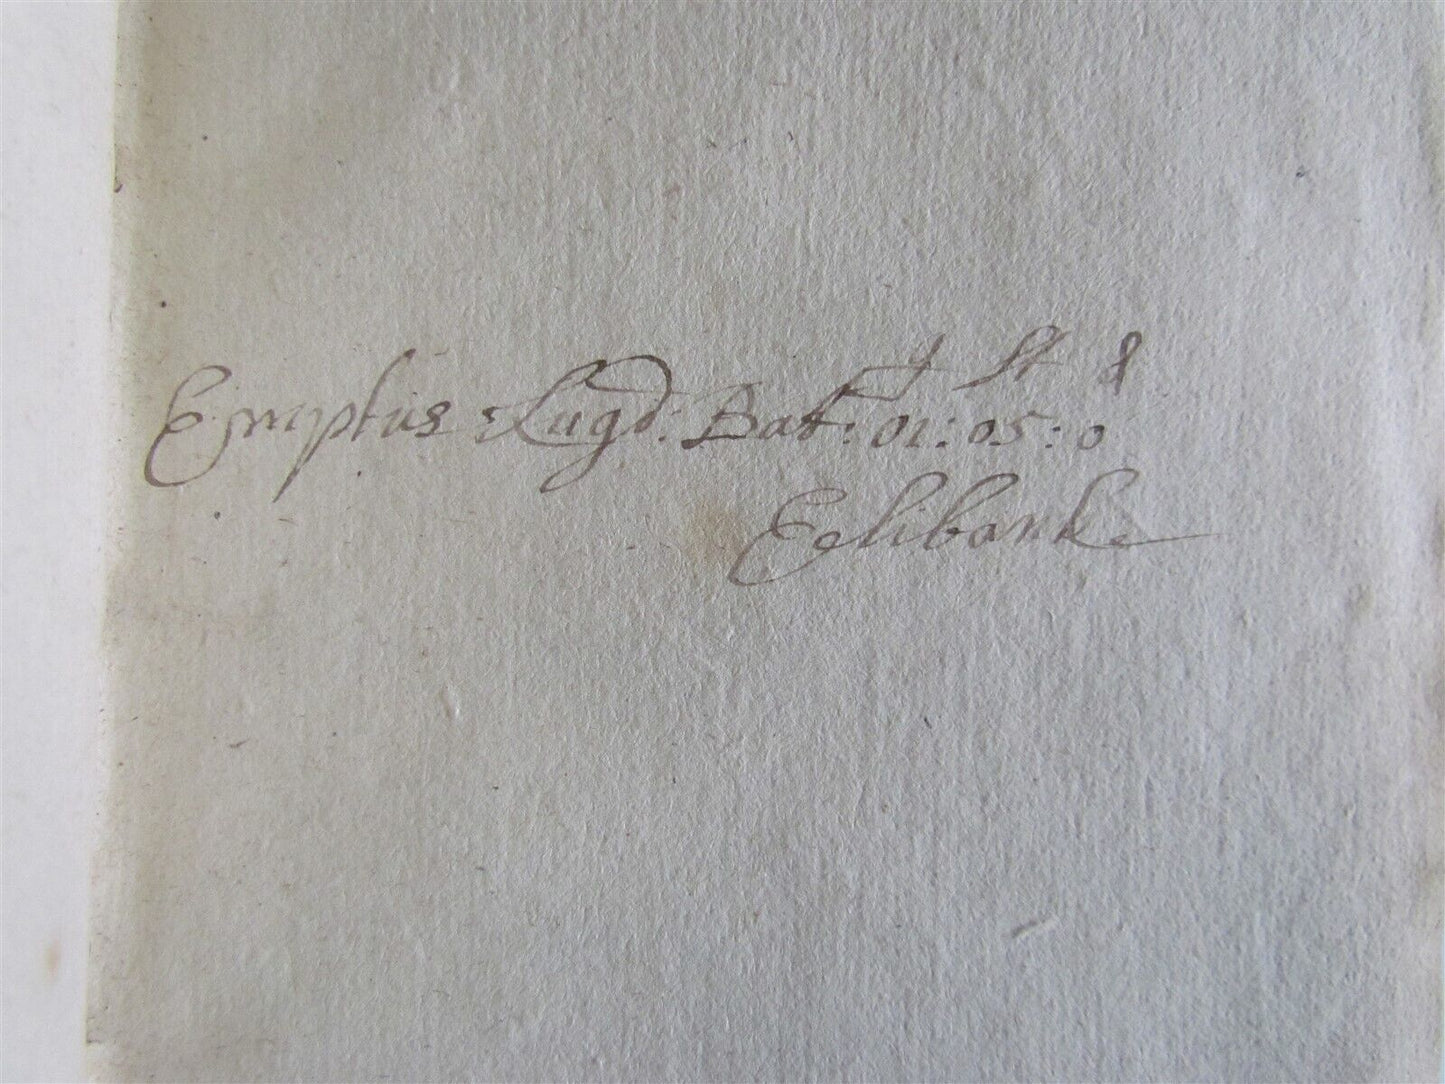 g st d
Emptus Lugd: Bat: 01: 05: 0
Eelibank